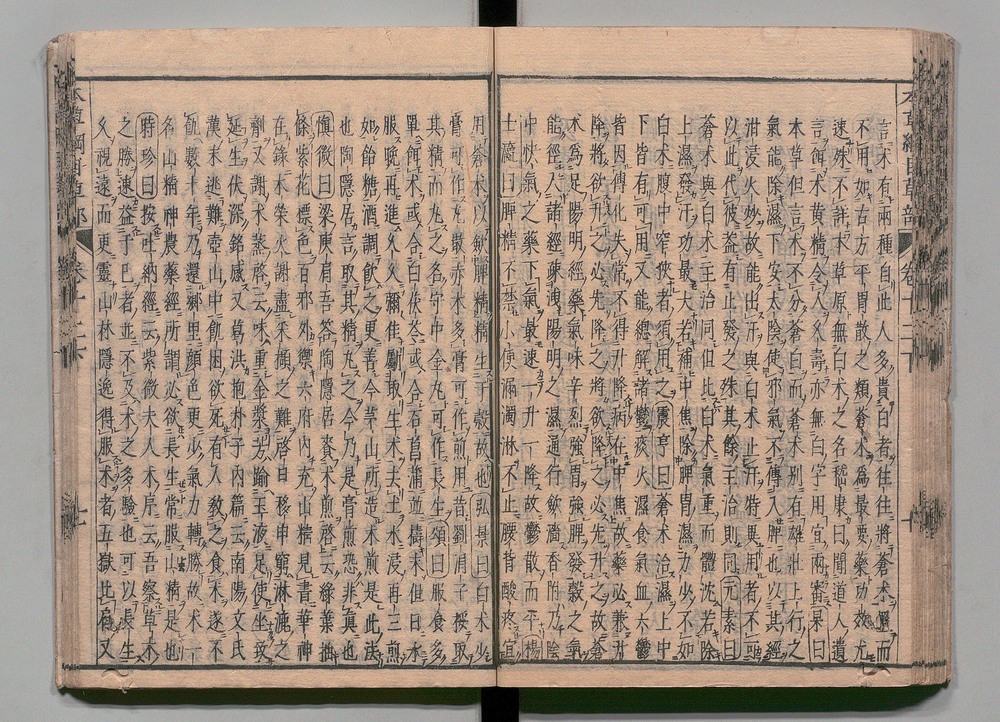 言术有兩種自此人多貴白者往往將蒼术置而
不用如古方平胃散之類蒼术爲最要藥功效尤
速殊不詳本草原無白术之名嵇康曰聞道人遺
言餌术黄精令人久壽亦無白字用宜兩審杲曰
本草但言术不分蒼白而蒼术別有雄壯上行之
氣能除濕下安太陰使邪氣不傳入脾也以其經
泔浸火炒故能出汗與白术止汗特異用者不可
以此代彼蓋有止發之殊其餘主治則同元素曰
蒼术與白术主治同但比白术氣重而體沈若除
上濕發汗功最大若補中焦除脾胃濕力少不如
白术腹中窄狹者須用之震亨曰蒼术治濕上中
下皆有可用又能總解諸鬱痰火濕食氣血六鬱
皆因傳化失常不得升降病在中焦故藥必兼升
降將欲升之必先降之將欲降之必先升之故蒼
术爲足陽明經藥氣味辛烈強胃強脾發穀之氣
能徑入諸經疎洩陽明之濕通行斂澀香附乃陰
中快氣之藥下氣最速一升一降故鬱散而平楊
士瀛曰脾精不禁小便漏濁淋不止腰背酸疼宜
用蒼术以斂脾精精生于穀故也弘景曰白术少
膏可作丸散赤术多膏可作煎用昔劉涓子挼取
其精而丸之名守中金丸可作長生頌曰服食多
單餌术或合白伏苓或合石菖蒲並擣末但日水
服晚再進久久彌佳斸取生术去土水浸再三煎
如飴糖酒調飲之更善今茅山所造术煎是此法
也陶隱居言取其精丸之今乃是膏煎恐非真也
慎微曰梁庾肩吾荅陶隱居賚术煎啓云緑葉抽
條紫花標色百邪外禦六府內充山精見書華神
在錄木榮火謝盡采擷之難啓旦移申窮淋漉之
劑又謝术蒸啓云味重金漿芳踰玉液足使坐致
延生伏深銘感又葛洪抱朴子內篇云南陽文氏
漢末逃難壺山中飢困欲死有人教之食术遂不
飢數十年乃還鄉里顏色更少氣力轉勝故术一
名山精神農藥經所謂必欲長生常服山精是也
時珍曰按吐納經云紫微夫人术序云吾察草木
之勝速益于己者並不及术之多驗也可以長生
久視遠而更靈山林隱逸得服术者五嶽比肩又